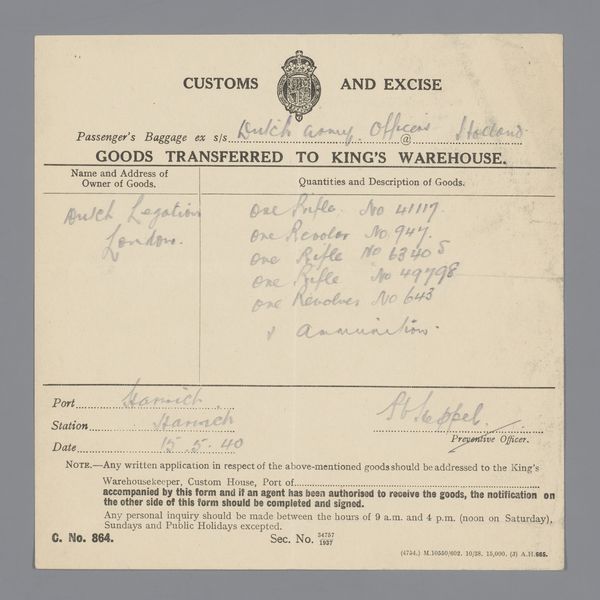 CUSTOMS AND EXCISE
Passenger's Baggage ex s/s Dutch Army Officers @ Holland
GOODS TRANSFERRED TO KING'S WAREHOUSE.
Name and Address of
Owner of Goods.
Quantities and Description of Goods.
Dutch Legation
London.
One Rifle. No 41117.
One Revolver No. 947.
One Rifle No 63405
One Rifle No 49798
One Revolver No 643
& Ammunition.
Port Harwich.
Station Harwich
Date 15.5.40
Preventive Officer.
NOTE.—Any written application in respect of the above-mentioned goods should be addressed to the King's
Warehousekeeper, Custom House, Port of
accompanied by this form and if an agent has been authorised to receive the goods, the notification on
the other side of this form should be completed and signed.
Any personal inquiry should be made between the hours of 9 a.m. and 4 p.m. (noon on Saturday),
Sundays and Public Holidays excepted.
C. No. 864.
Sec. No. 54757/1937
(4754.) M.10550/602. 10/38. 15,000. (J) A.H.665.